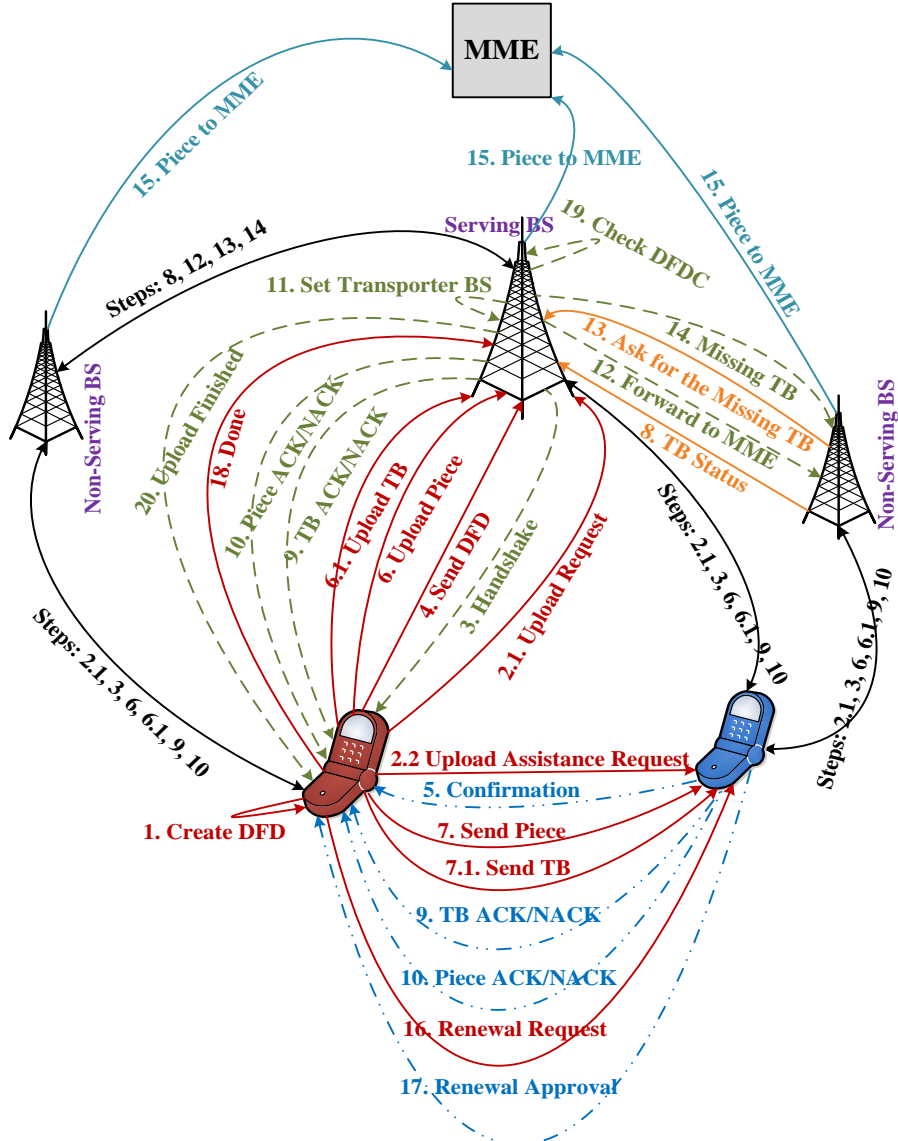 MME
15. Piece to MME
15. Piece to MME
15. Piece to MME
Serving BS
19. Check DFDC
Steps: 8, 12, 13, 14
11. Set Transporter BS
14. Missing TB
13. Ask for the Missing TB
12. Forward to MME
8. TB Status
Non-Serving BS
Non-Serving BS
20. Upload Finished
18. Done
10. Piece ACK/NACK
9. TB ACK/NACK
6.1. Upload TB
6. Upload Piece
4. Send DFD
3. Handshake
2.1. Upload Request
Steps: 2.1, 3, 6, 6.1, 9, 10
Steps: 2.1, 3, 6, 6.1, 9, 10
Steps: 2.1, 3, 6, 6.1, 9, 10
2.2 Upload Assistance Request
5. Confirmation
1. Create DFD
7. Send Piece
7.1. Send TB
9. TB ACK/NACK
10. Piece ACK/NACK
16. Renewal Request
17. Renewal Approval